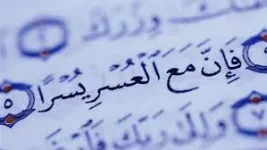 وِزْرَكَ
فَإِنَّ مَعَ ٱلْعُسْرِ يُسْرًا ٥
وَإِلَىٰ رَبِّكَ فَٱرْ